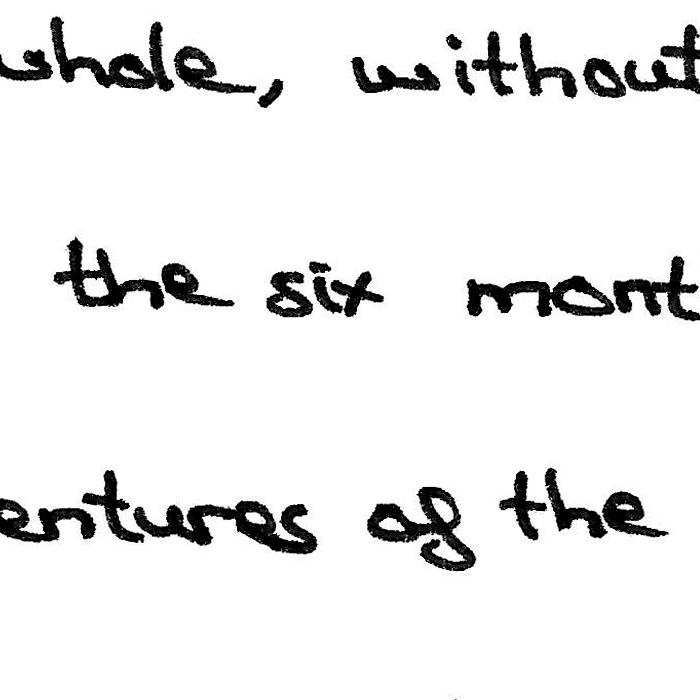 whole, without
the six mont
entures of the